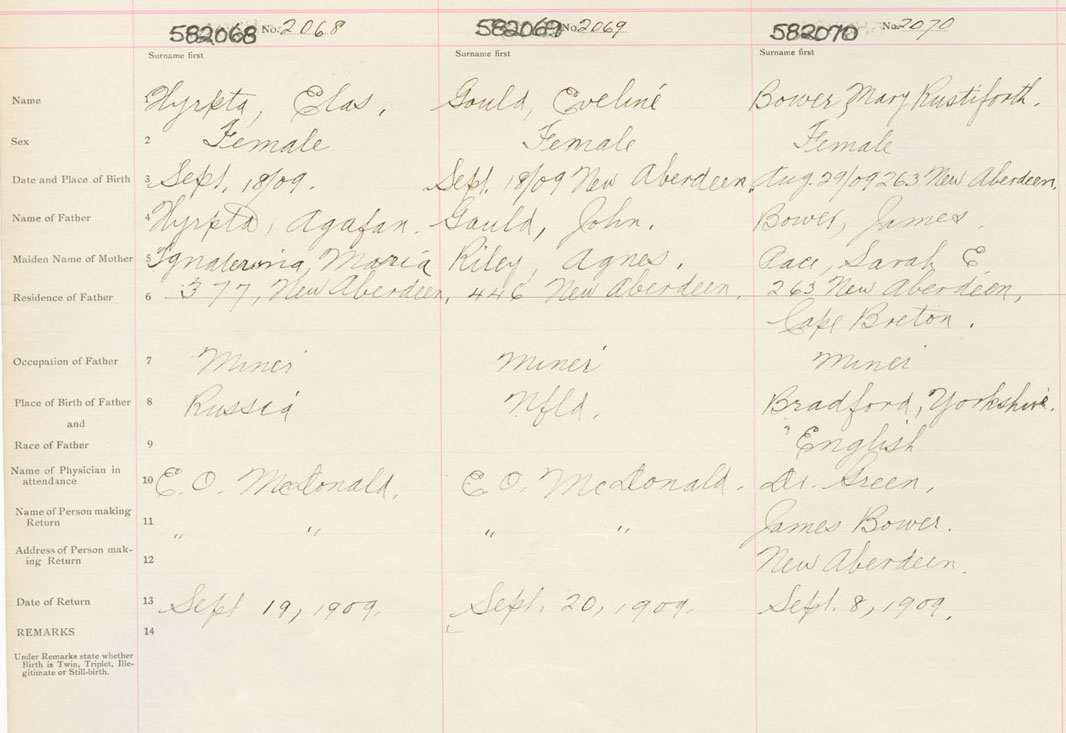 582068 No. 2068 582069 No. 2069 582070 No. 2070
Surname first Surname first Surname first
Name 1 Hyrpta, Elas, Gould, Eveline Bower, Mary Rustiforth.
Sex 2 Female Female Female
Date and Place of Birth 3 Sept. 18/09. Sept. 18/09 New Aberdeen, Aug. 29/09 263 New Aberdeen,
Name of Father 4 Hyrpta, Agafan. Gould, John. Bower, James.
Maiden Name of Mother 5 Maria Riley, Agnes. Pace, Sarah E.
Residence of Father 6 377, New Aberdeen, 446 New Aberdeen, 263 New Aberdeen,
Cape Breton.
Occupation of Father 7 Miner Miner Miner
Place of Birth of Father 8 Russia Nfld. Bradford, Yorkshire.
and
Race of Father 9 ? English
Name of Physician in
attendance 10 E. O. McDonald. E. O. McDonald. Dr. Green,
Name of Person making
Return 11 " " " " James Bower.
Address of Person mak-
ing Return 12 New Aberdeen.
Date of Return 13 Sept 19, 1909. Sept. 20, 1909. Sept. 8, 1909.
REMARKS 14
Under Remarks state whether
Birth is Twin, Triplet, Ille-
gitimate or Still-birth.